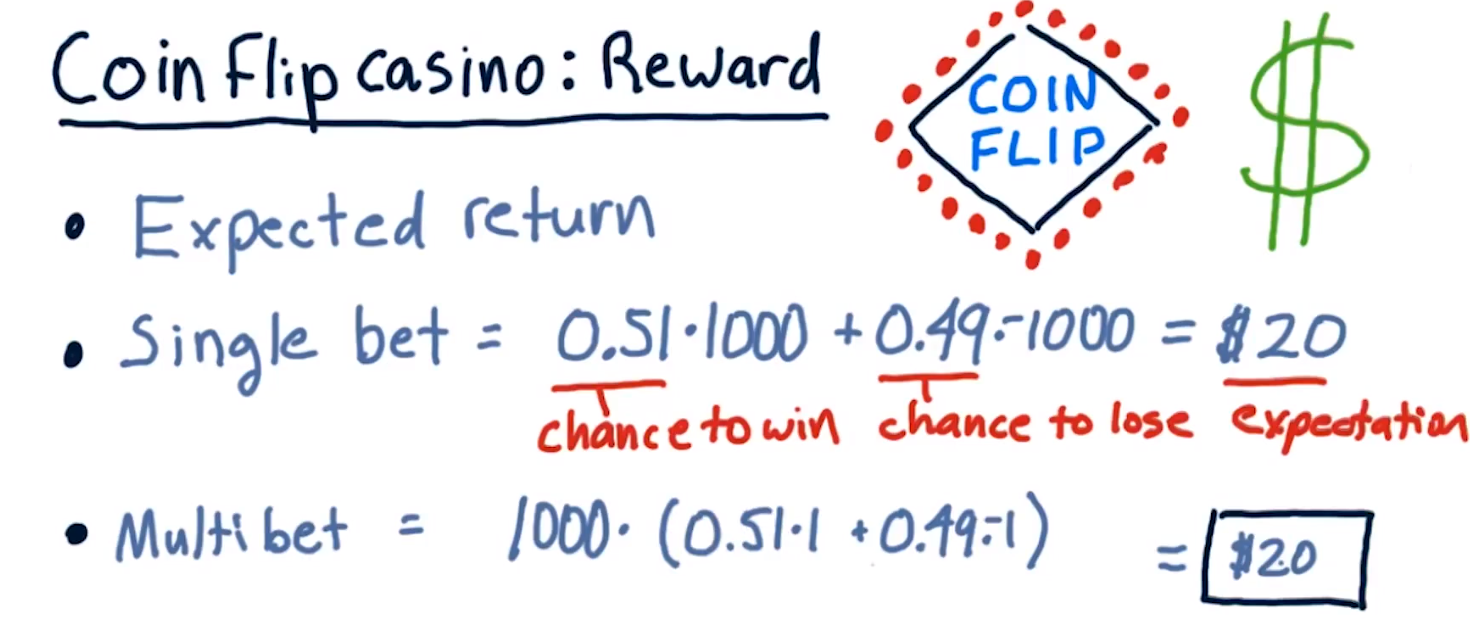 Coin Flip casino: Reward
COIN
FLIP
$
• Expected return
• Single bet = 0.51·1000 + 0.49·-1000 = $20
chance to win chance to lose expectation
• Multi bet = 1000·(0.51·1 + 0.49·-1) = $20